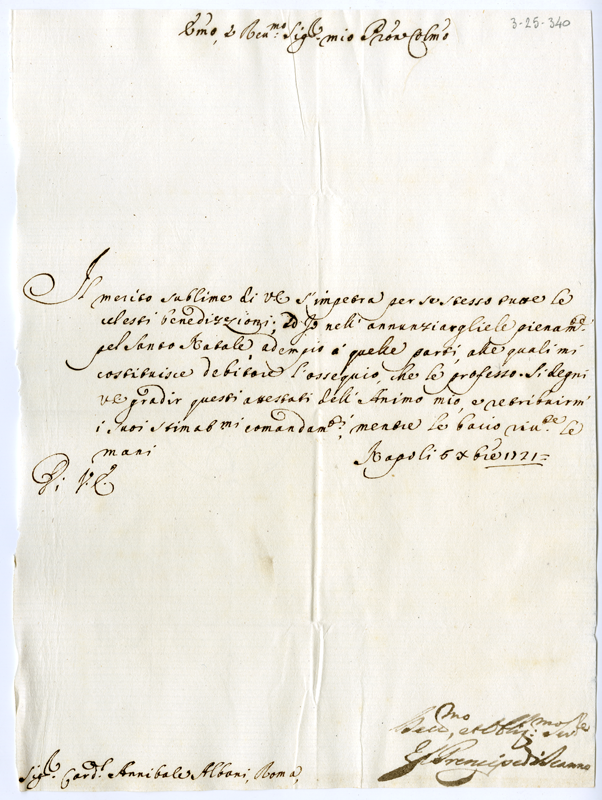 3-25-340
Emo, e Reu.mo Sig.r mio Pron Colmo
Il merito sublime di VE s'impetra per se stesso tutte le
celesti benedizzioni; Ed Io nell'annunziargliele pienam.te
pel Santo Natale adempio à quelle parti, alle quali mi
costituisce debitore l'ossequio, che le professo. Si degni
VE gradir questi attestati dell'Animo mio, e retribuirmi
i suoi stimat.mi comandam.ti, mentre le bacio riu.te le
mani
Napoli 6 Xbre 1721=
Di V.E.
mo mo re
Il Prencipe di Scanno
Sig.r Card.l Annibale Albani, Roma,